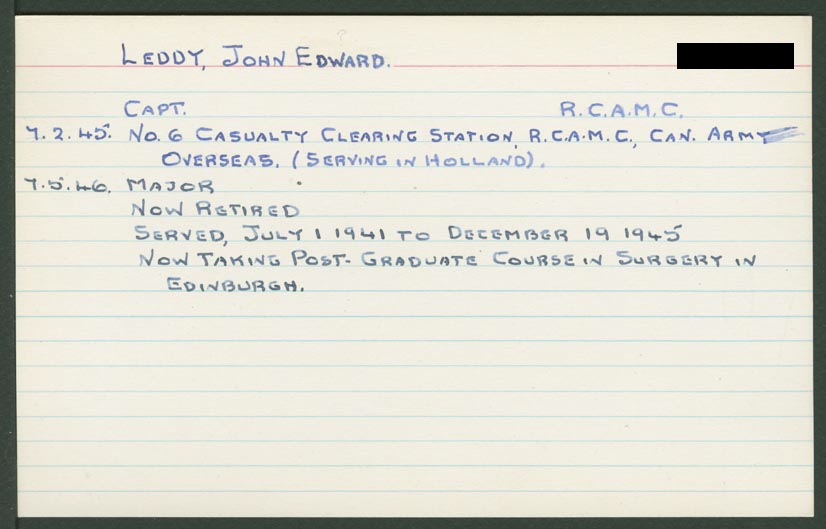 LEDDY, JOHN EDWARD.
CAPT. R.C.A.M.C.
7.2.45. NO. 6 CASUALTY CLEARING STATION, R.C.A.M.C., CAN. ARMY
OVERSEAS. (SERVING IN HOLLAND).
7.5.46. MAJOR
NOW RETIRED
SERVED, JULY 1 1941 TO DECEMBER 19 1945
NOW TAKING POST-GRADUATE COURSE IN SURGERY IN
EDINBURGH.